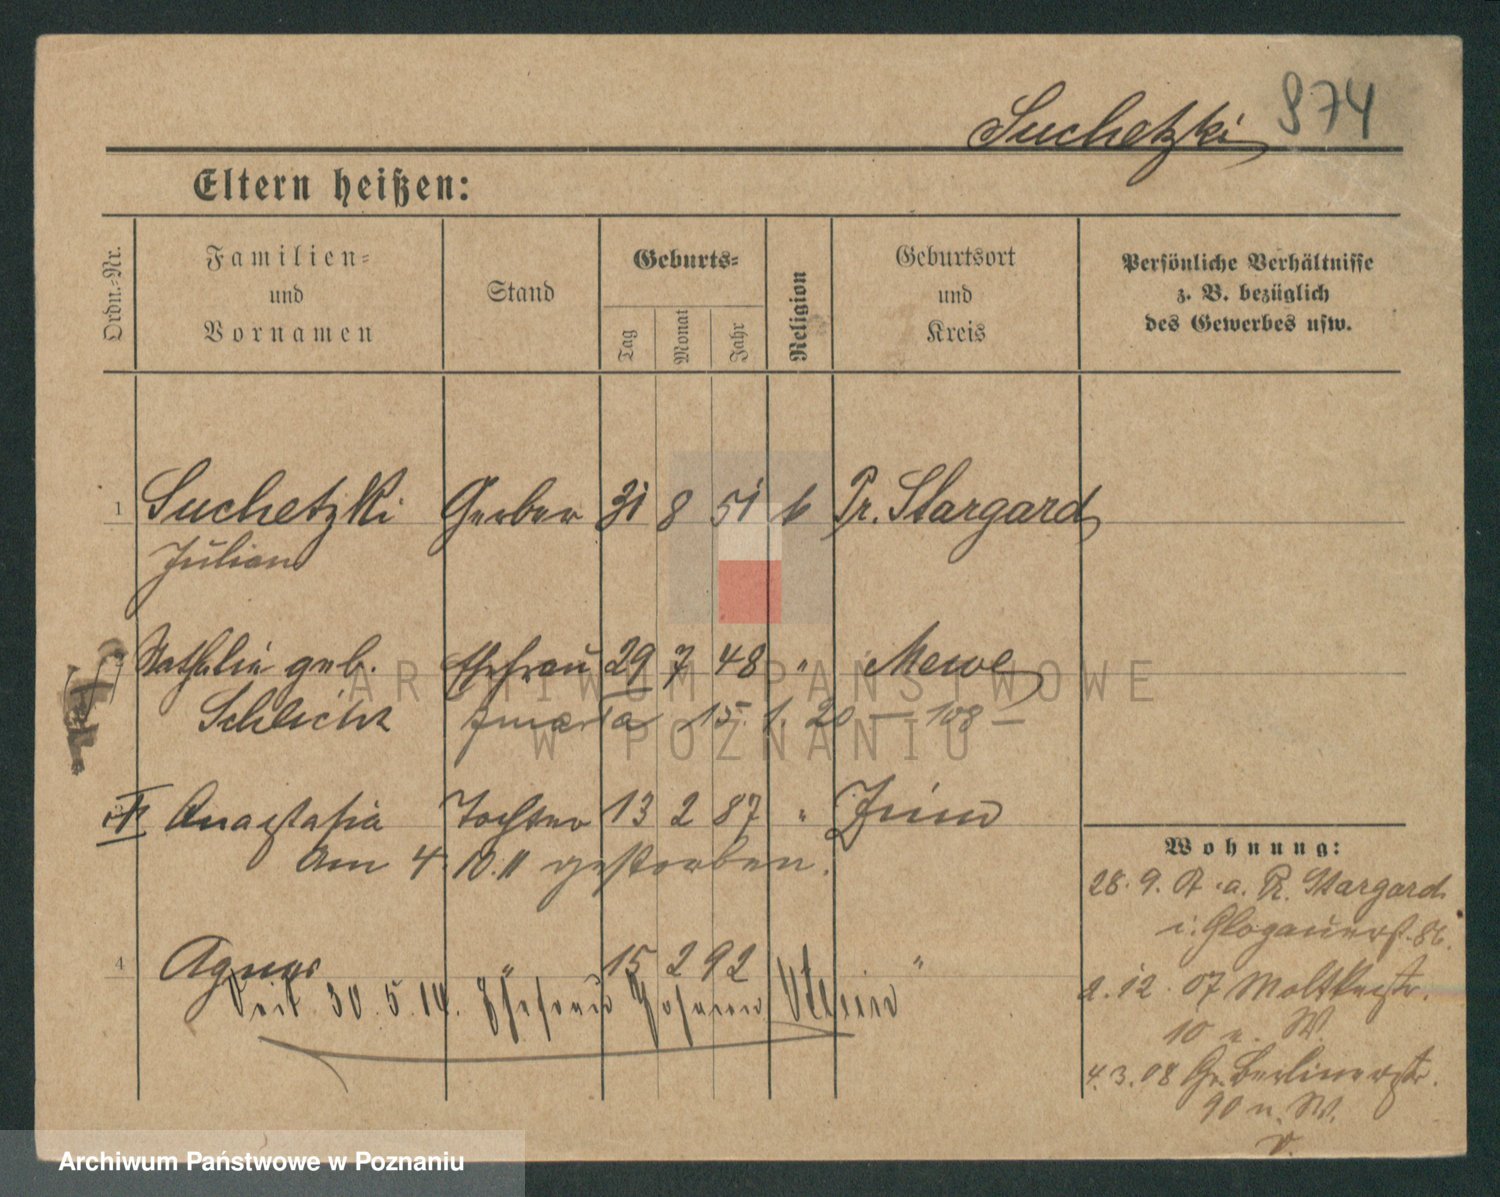 Suchetzki 974
Eltern heißen:
Ordn.-Nr.
Familien-
und
Vornamen
Stand
Geburts-
Tag
Monat
Jahr
Religion
Geburtsort
und
Kreis
Persönliche Verhältnisse
z. B. bezüglich
des Gewerbes usw.
1 Suchetzki Gerber 31 8 51 k Pr. Stargard
Julian
Nathalie geb. Ehefrau 29 7 48 " Mewe
Schlicht 15. 1. 20 — 108 —
Anastasia Tochter 13 2 87 "
Am 4. 10. 11 gestorben.
4 Agnes " 15 2 92 "
Seit 30. 5. 14. Ehefrau Johann
Wohnung:
28. 9. a. Pr. Stargard
Glogauerst. 86.
2. 12. 07 Moltkestr.
10 n. W.
4. 3. 08 Gr. Berlinerstr.
90 n. W.
ARCHIWUM PAŃSTWOWE
W POZNANIU
Archiwum Państwowe w Poznaniu